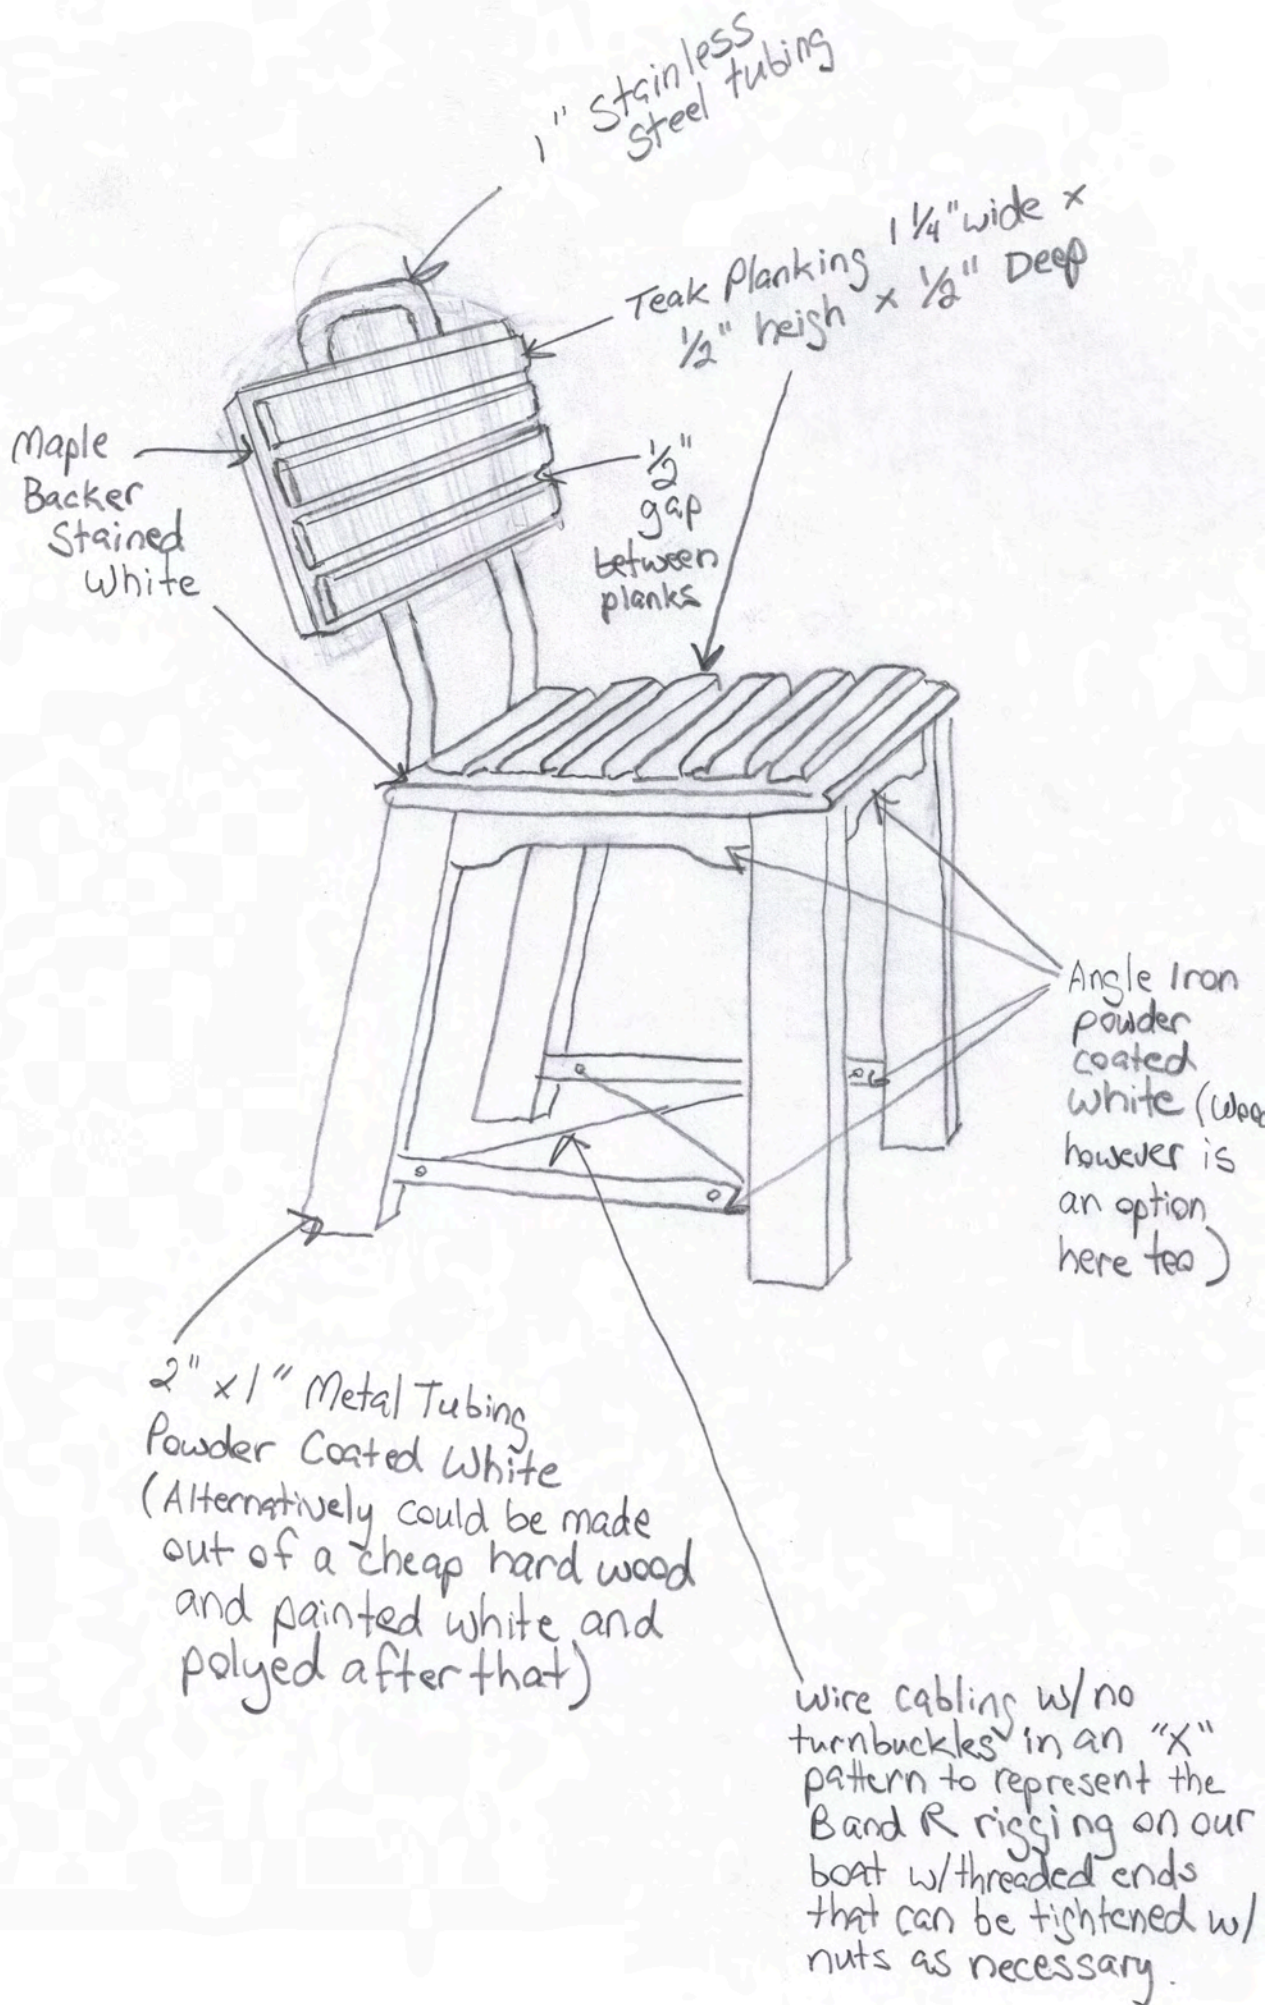 1" Stainless
Steel tubing
Teak Planking 1 1/4" wide x
1/2" heigh x 1/2" Deep
Maple
Backer
Stained
White
1/2"
gap
between
planks
Angle Iron
powder
coated
white (
however is
an option
here too)
2" x 1" Metal Tubing
Powder Coated White
(Alternatively could be made
out of a cheap hard wood
and painted white and
polyed after that)
wire cabling w/no
turnbuckles in an "X"
pattern to represent the
B and R rigging on our
boat w/threaded ends
that can be tightened w/
nuts as necessary.